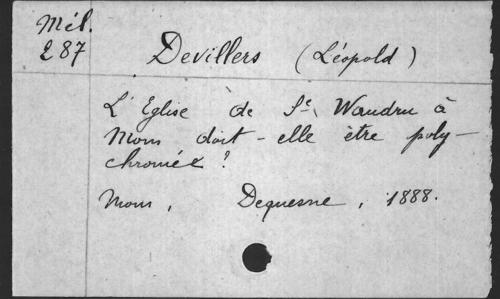 Mél.
287
Devillers (Léopold)
L'Eglise de Ste Waudru à
Mons doit-elle être poly-
chromée?
Mons, Dequesne, 1888.